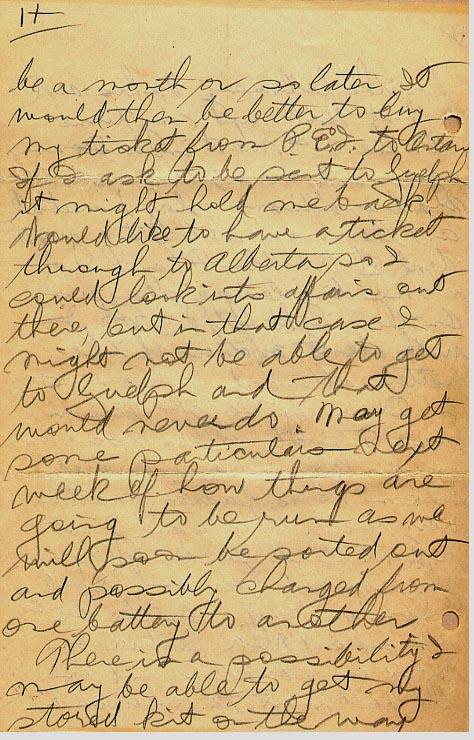 14
be a month or so later. It
would then be better to buy
my ticket from P.E.I. to Ontario
If I ask to be sent to Guelph
it might hold me back.
Would like to have a ticket
through to Alberta so I
could look into affairs out
there, but in that case I
might not be able to get
to Guelph and that
would never do. May get
some particulars next
week of how things are
going to be run as we
will soon be sorted out
and possibly changed from
one battery to another
There is a possibility I
may be able to get my
stored kit on the way